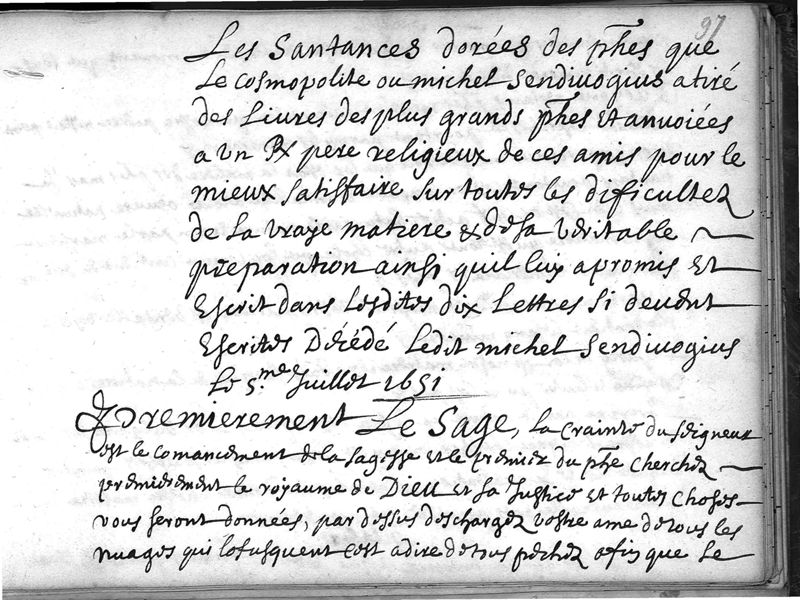 97
Les Santances dorées des phes que
Le Cosmopolite ou michel Sendivogius a tiré
des Livres des plus grands phes Et anvoiées
a Un Rx pere religieux de ces amis pour le
mieux satisfaire sur toutes les difficultez
de la vraye matiere & de sa veritable
preparation ainsi quil luy a promis Et
Escrit dans lesdites dix Lettres si devent
Escrites Décédé ledit michel Sendivogius
Le 5.me Juillet 1651
Premierement Le Sage, la crainte du seigneur
est le comancement de la sagesse Et le premier du phe cherchez
premierement le royaume de Dieu Et sa Justice Et toutes choses
vous seront données, par dessus deschargez vostre ame de tous les
nuages qui lofusquent cest a dire de tous pechez afin que le